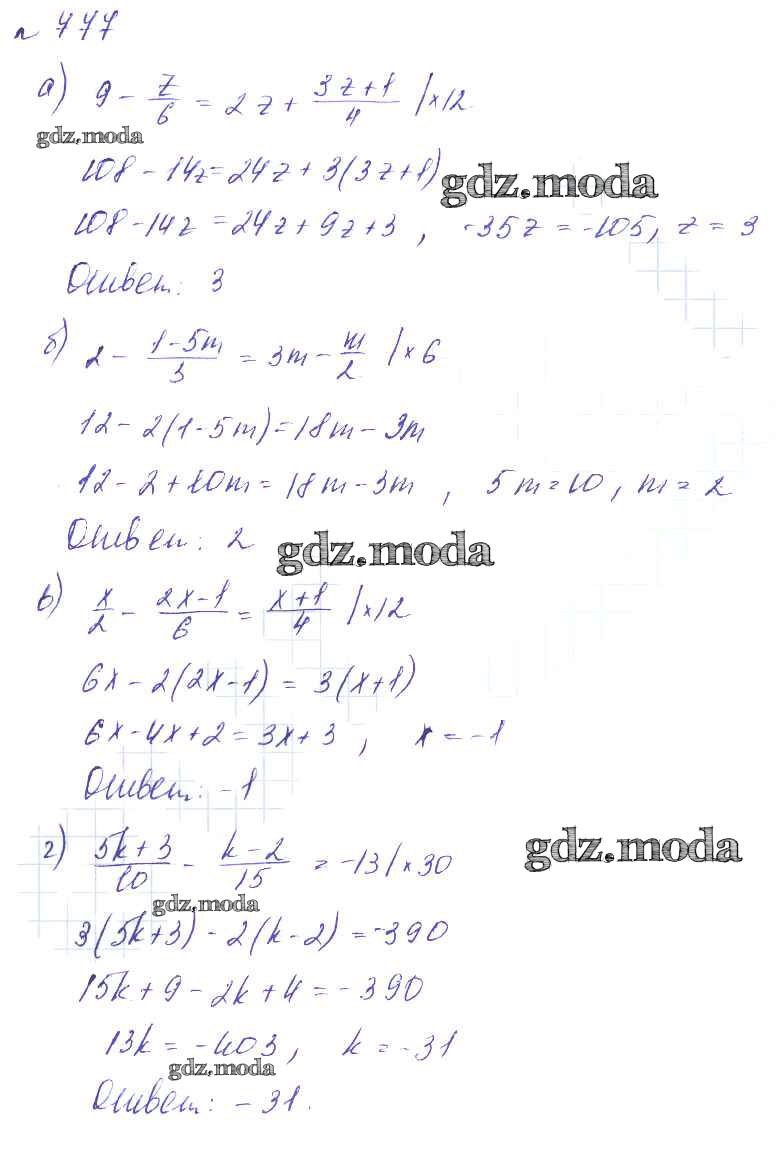 № 777
а) 9 - z/6 = 2z + (3z+1)/4 | ×12
gdz.moda
108 - 14z = 24z + 3(3z+1)
gdz.moda
108 - 14z = 24z + 9z + 3 , -35z = -105, z = 3
Ответ: 3
б) 2 - (1-5m)/3 = 3m - m/2 | × 6
12 - 2(1-5m) = 18m - 3m
12 - 2 + 10m = 18m - 3m , 5m = 10, m = 2
Ответ: 2
gdz.moda
в) x/2 - (2x-1)/6 = (x+1)/4 | ×12
6x - 2(2x-1) = 3(x+1)
6x - 4x + 2 = 3x + 3 , x = -1
Ответ: -1
г) (5k+3)/10 - (k-2)/15 = -13 | × 30
gdz.moda
gdz.moda
3(5k+3) - 2(k-2) = -390
15k + 9 - 2k + 4 = -390
13k = -403, k = -31
gdz.moda
Ответ: -31.